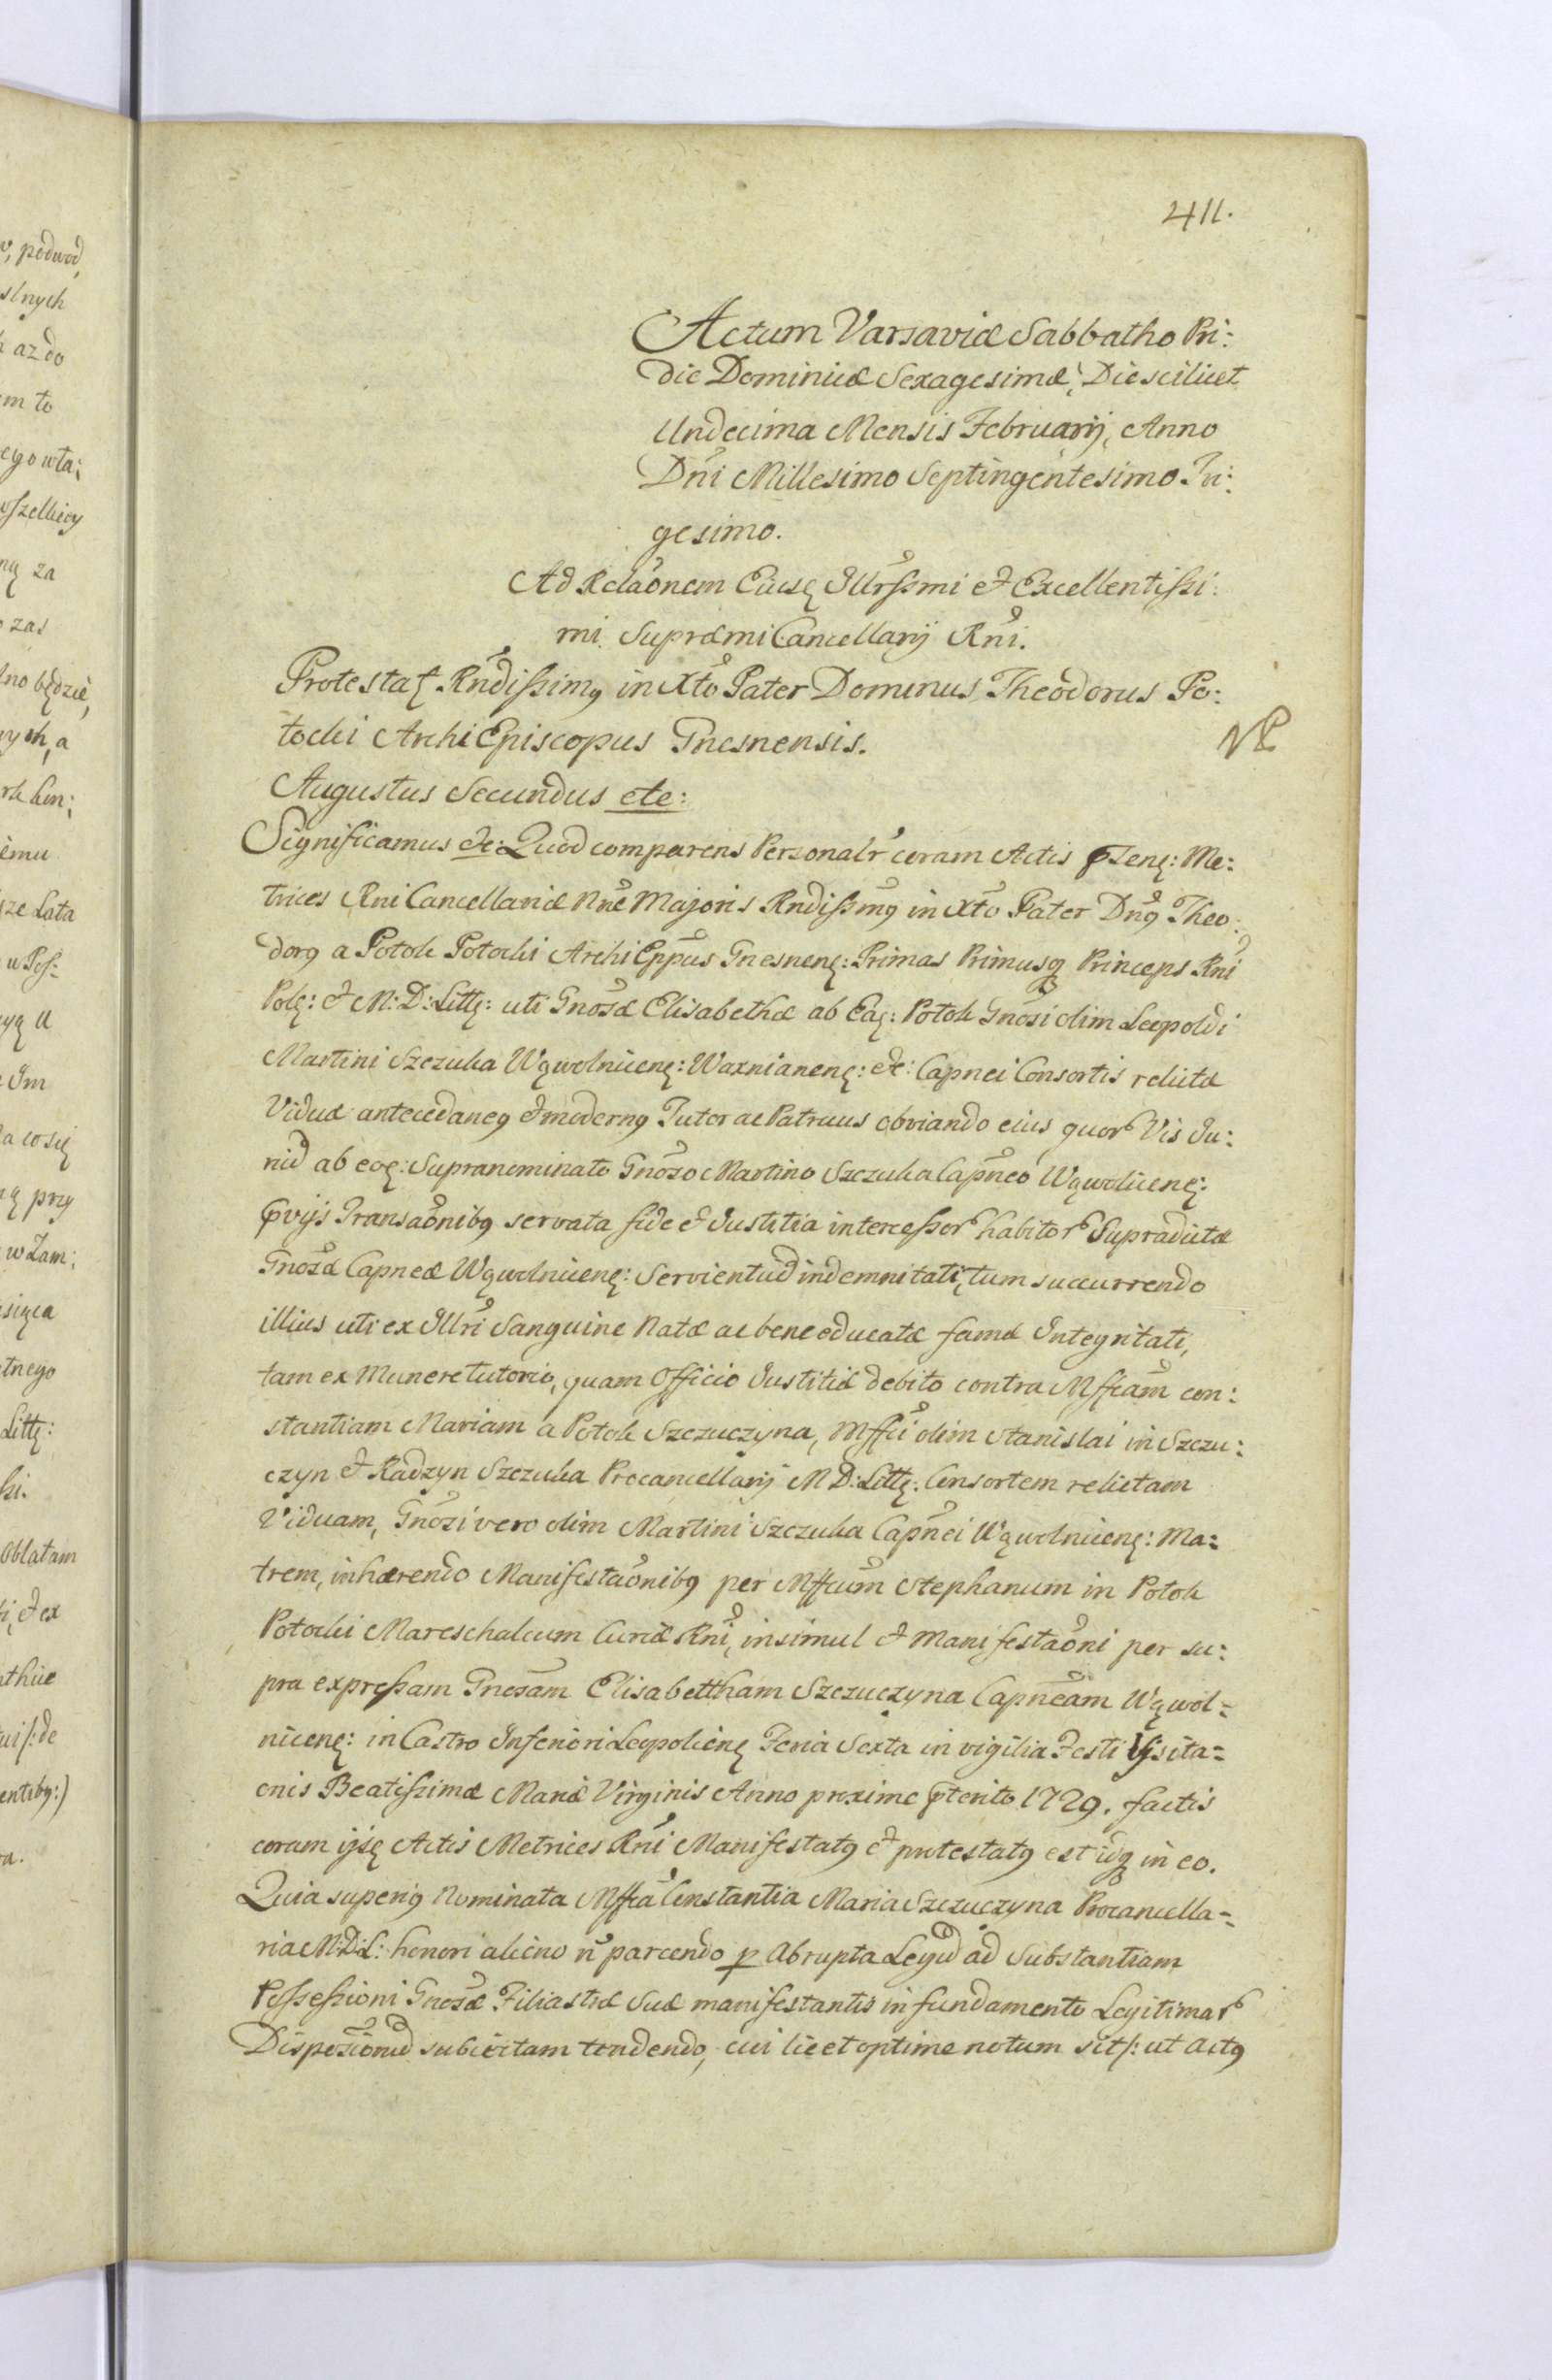 411.
Actum Varsaviæ Sabbatho Pri:
die Dominicæ Sexagesimæ, Die scilicet
Undecima Mensis Februarij, Anno
Dni Millesimo Septingentesimo Tri:
gesimo.
Ad Relaonem Eiusę Illrssmi et Excellentissi:
mi Supræmi Cancellarij Rni.
Protestaŧ Rndissimꝯ in Xto Pater Dominus Theodorus Po:
tocki Archi Episcopus Gnesnensis.
NP
Augustus Secundus etc:
Significamus etc: Quod comparens Personalr coram Actis pseng: Me:
trices Rni Cancellariæ Nræ Majoris Rndissmꝯ in Xto Pater Dnꝯ Theo:
dorꝯ a Potok Potocki Archi Eppus Gnesnenę: Primas Primusqꝫ Princeps Rni
Polę: et M: D: Littę: uti Gnosæ Elisabethæ ab Eaę: Potok Gnosi olim Leopoldi
Martini Szczuka Wąwolnicenę: Waxnianenę: etc: Capnei Consortis relictæ
Viduæ antecedaneꝯ et modernꝯ Tutor ac Patruus obviando eius quor Vis Iu:
rid ab eoę: Supranominato Gnoso Martino Szczuka Capneo Wąwolicenę:
pvijs Transaonibꝯ servata fide et Iustitia intercessor habitor Supradictæ
Gnosæ Capneæ Wąwolnicenę: Servientud indemnitati, tum succurrendo
illius uti ex Illri Sanguine Natæ ac bene educatæ famæ Integritati,
tam ex Munere tutorio, quam Officio Iustitiæ debito contra Mffcam con:
stantiam Mariam a Potok Szczuczyna, Mffci olim Stanislai in Szczu:
czyn et Radzyn Szczuka Procancellarij M D: Littę: Consortem relictam
Viduam, Gnosi vero olim Martini Szczuka Capnei Wąwolnicenę: Ma:
trem, inhærendo Manifestaonibꝯ per Mffcum Stephanum in Potok
Potocki Mareschalcum Curiæ Rni, insimul et Manifestaoni per su:
pra expressam Gnosam Elisabettham Szczuczyna Capneam Wąwol=
nicenę: in Castro Inferiori Leopolienę Feria Sexta in vigilia Festi Visita=
onis Beatissimæ Mariæ Virginis Anno proxime pterito 1729. factis
coram ijsę Actis Metrices Rni Manifestatꝯ et protestatꝯ est idqꝫ in eo.
Quia superiꝯ Nominata Mffca Constantia Maria Szczuczyna Procancella=
ria M: D: L: honori alieno n parcendo p Abrupta Legud ad Substantiam
Possessioni Gnosæ Filiastræ Suæ manifestantis in fundamento Legitimar
Dispozionud subiectam tendendo, cui licet optime notum sit/: ut Actꝯ